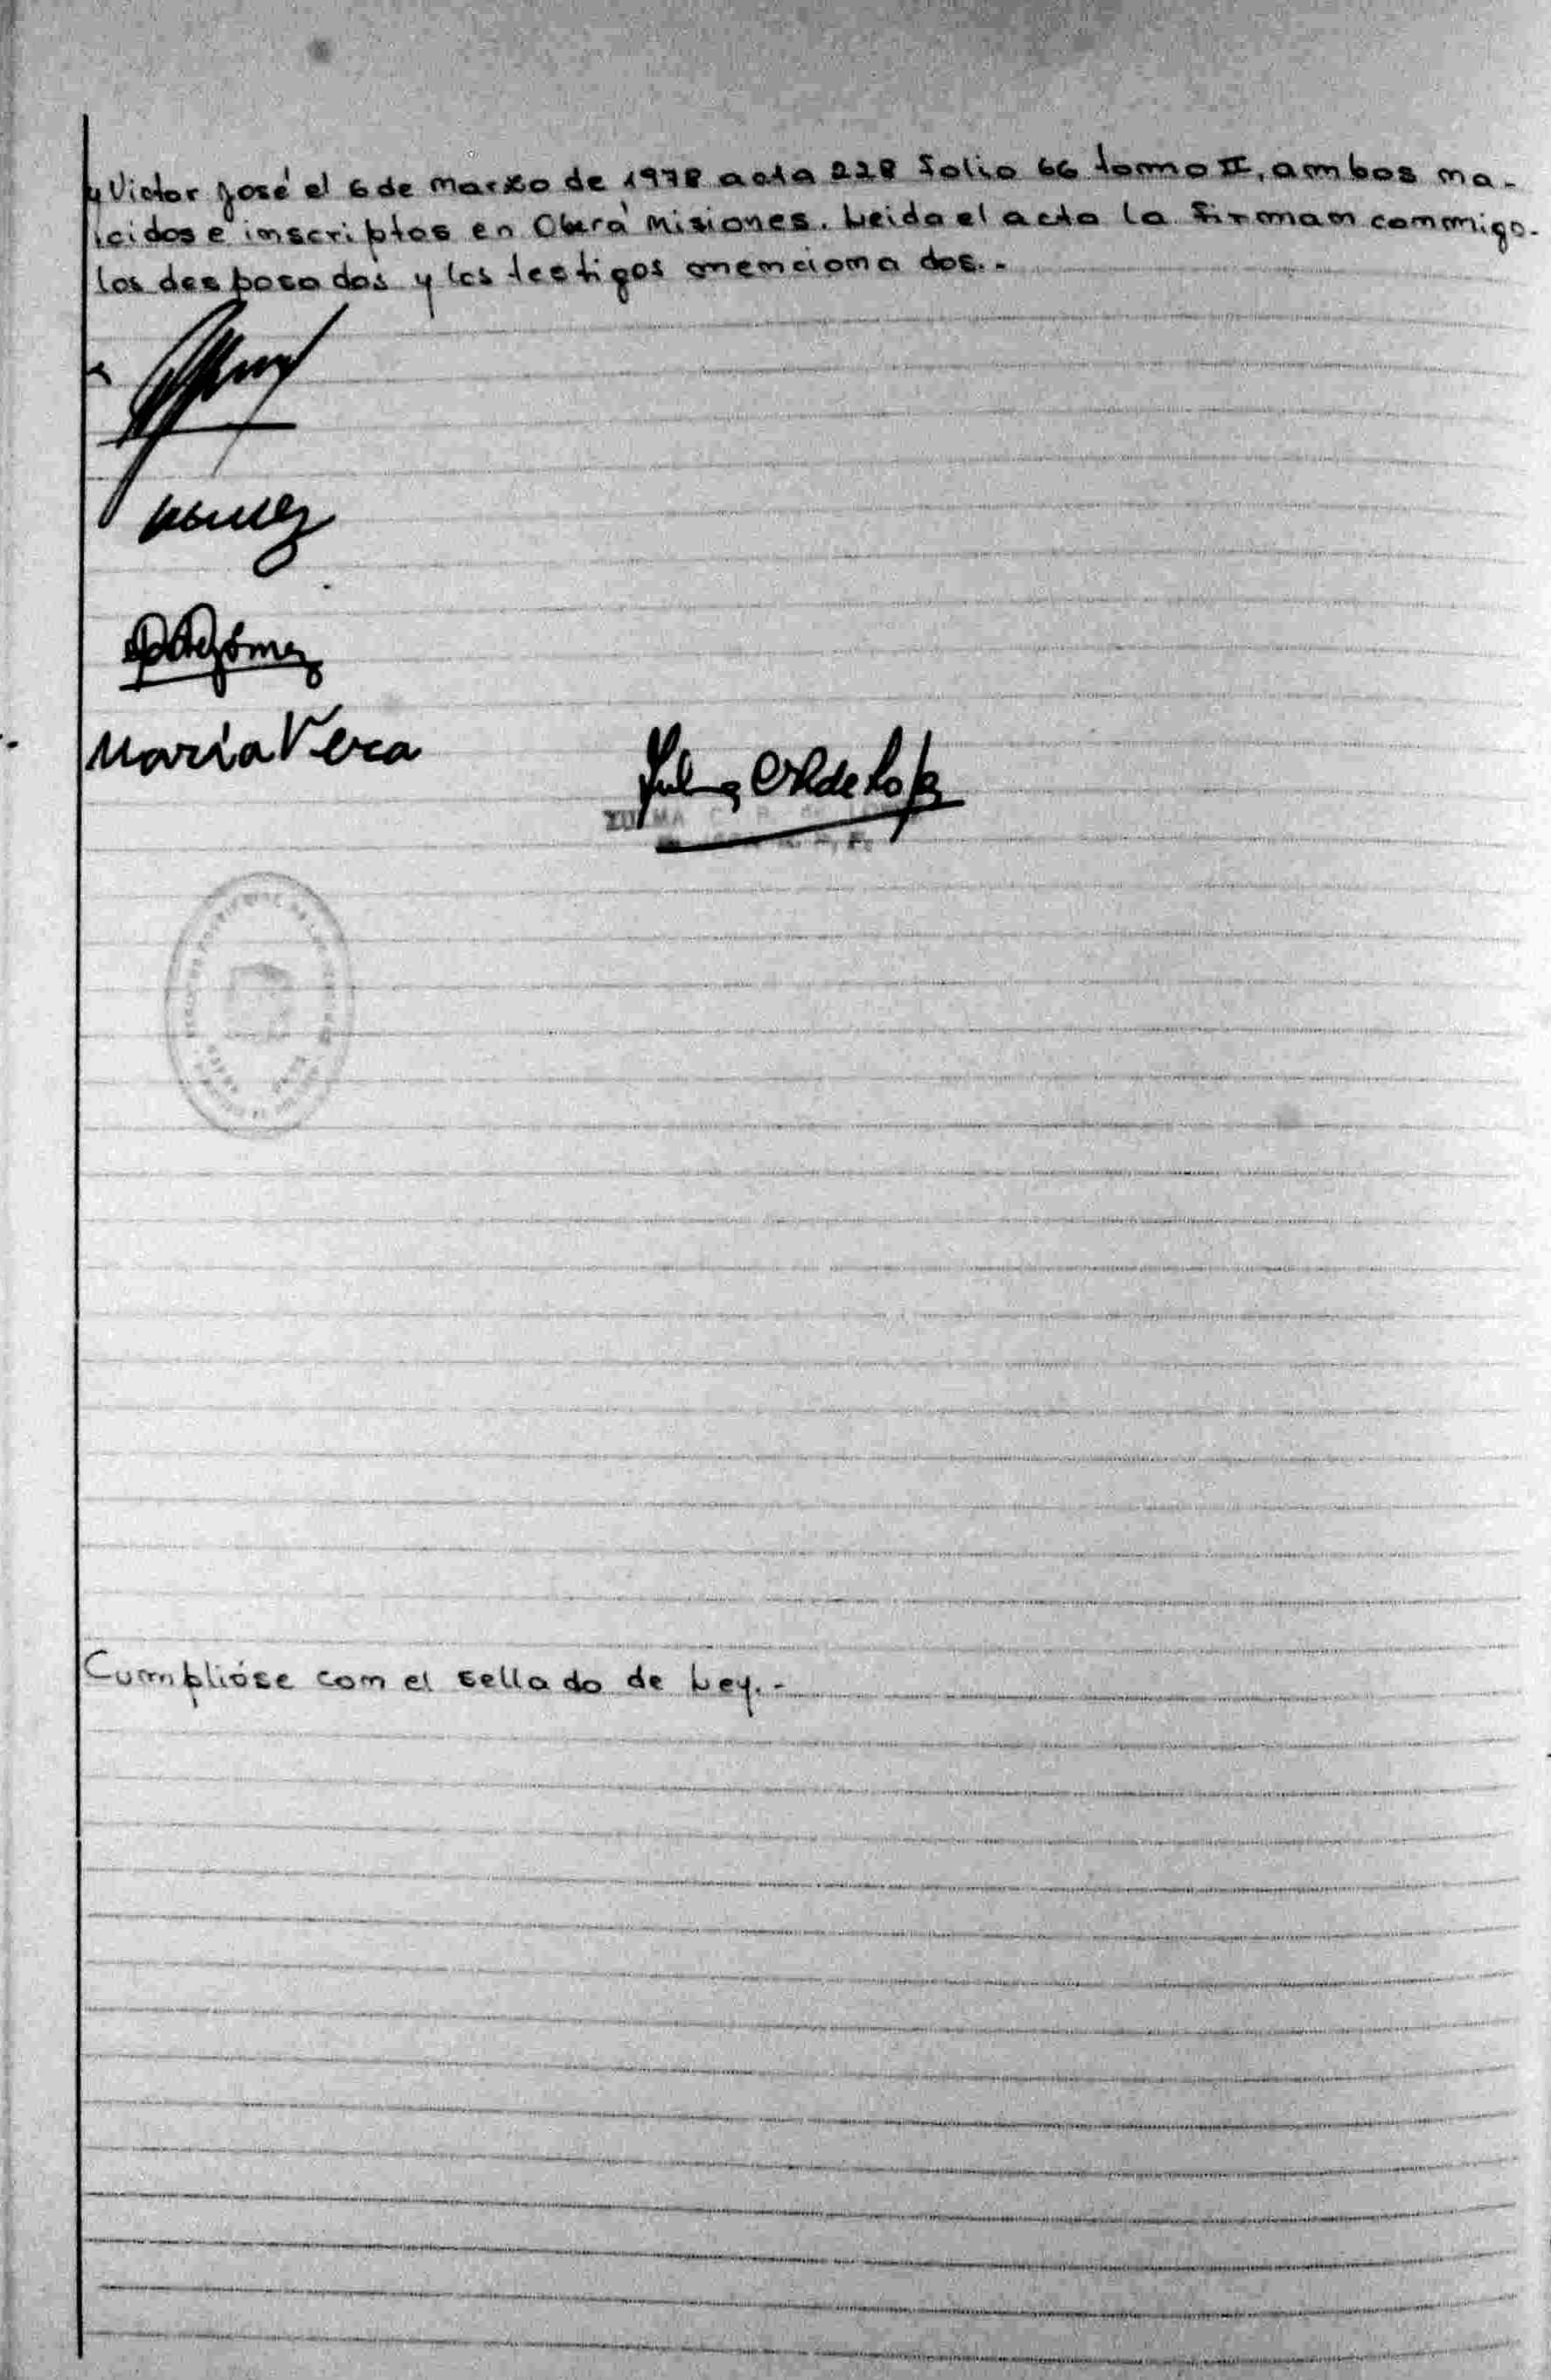 y Victor José el 6 de marzo de 1978 acta 228 folio 66 tomo II, ambos na-
icidos e inscriptos en Oberá Misiones. Leida el acta la firman conmigo.
los desposados y los testigos mencionados.-
Gómez
María Vera
Zulma de
ZULMA C. R. de
Cumplióse con el sellado de Ley.-